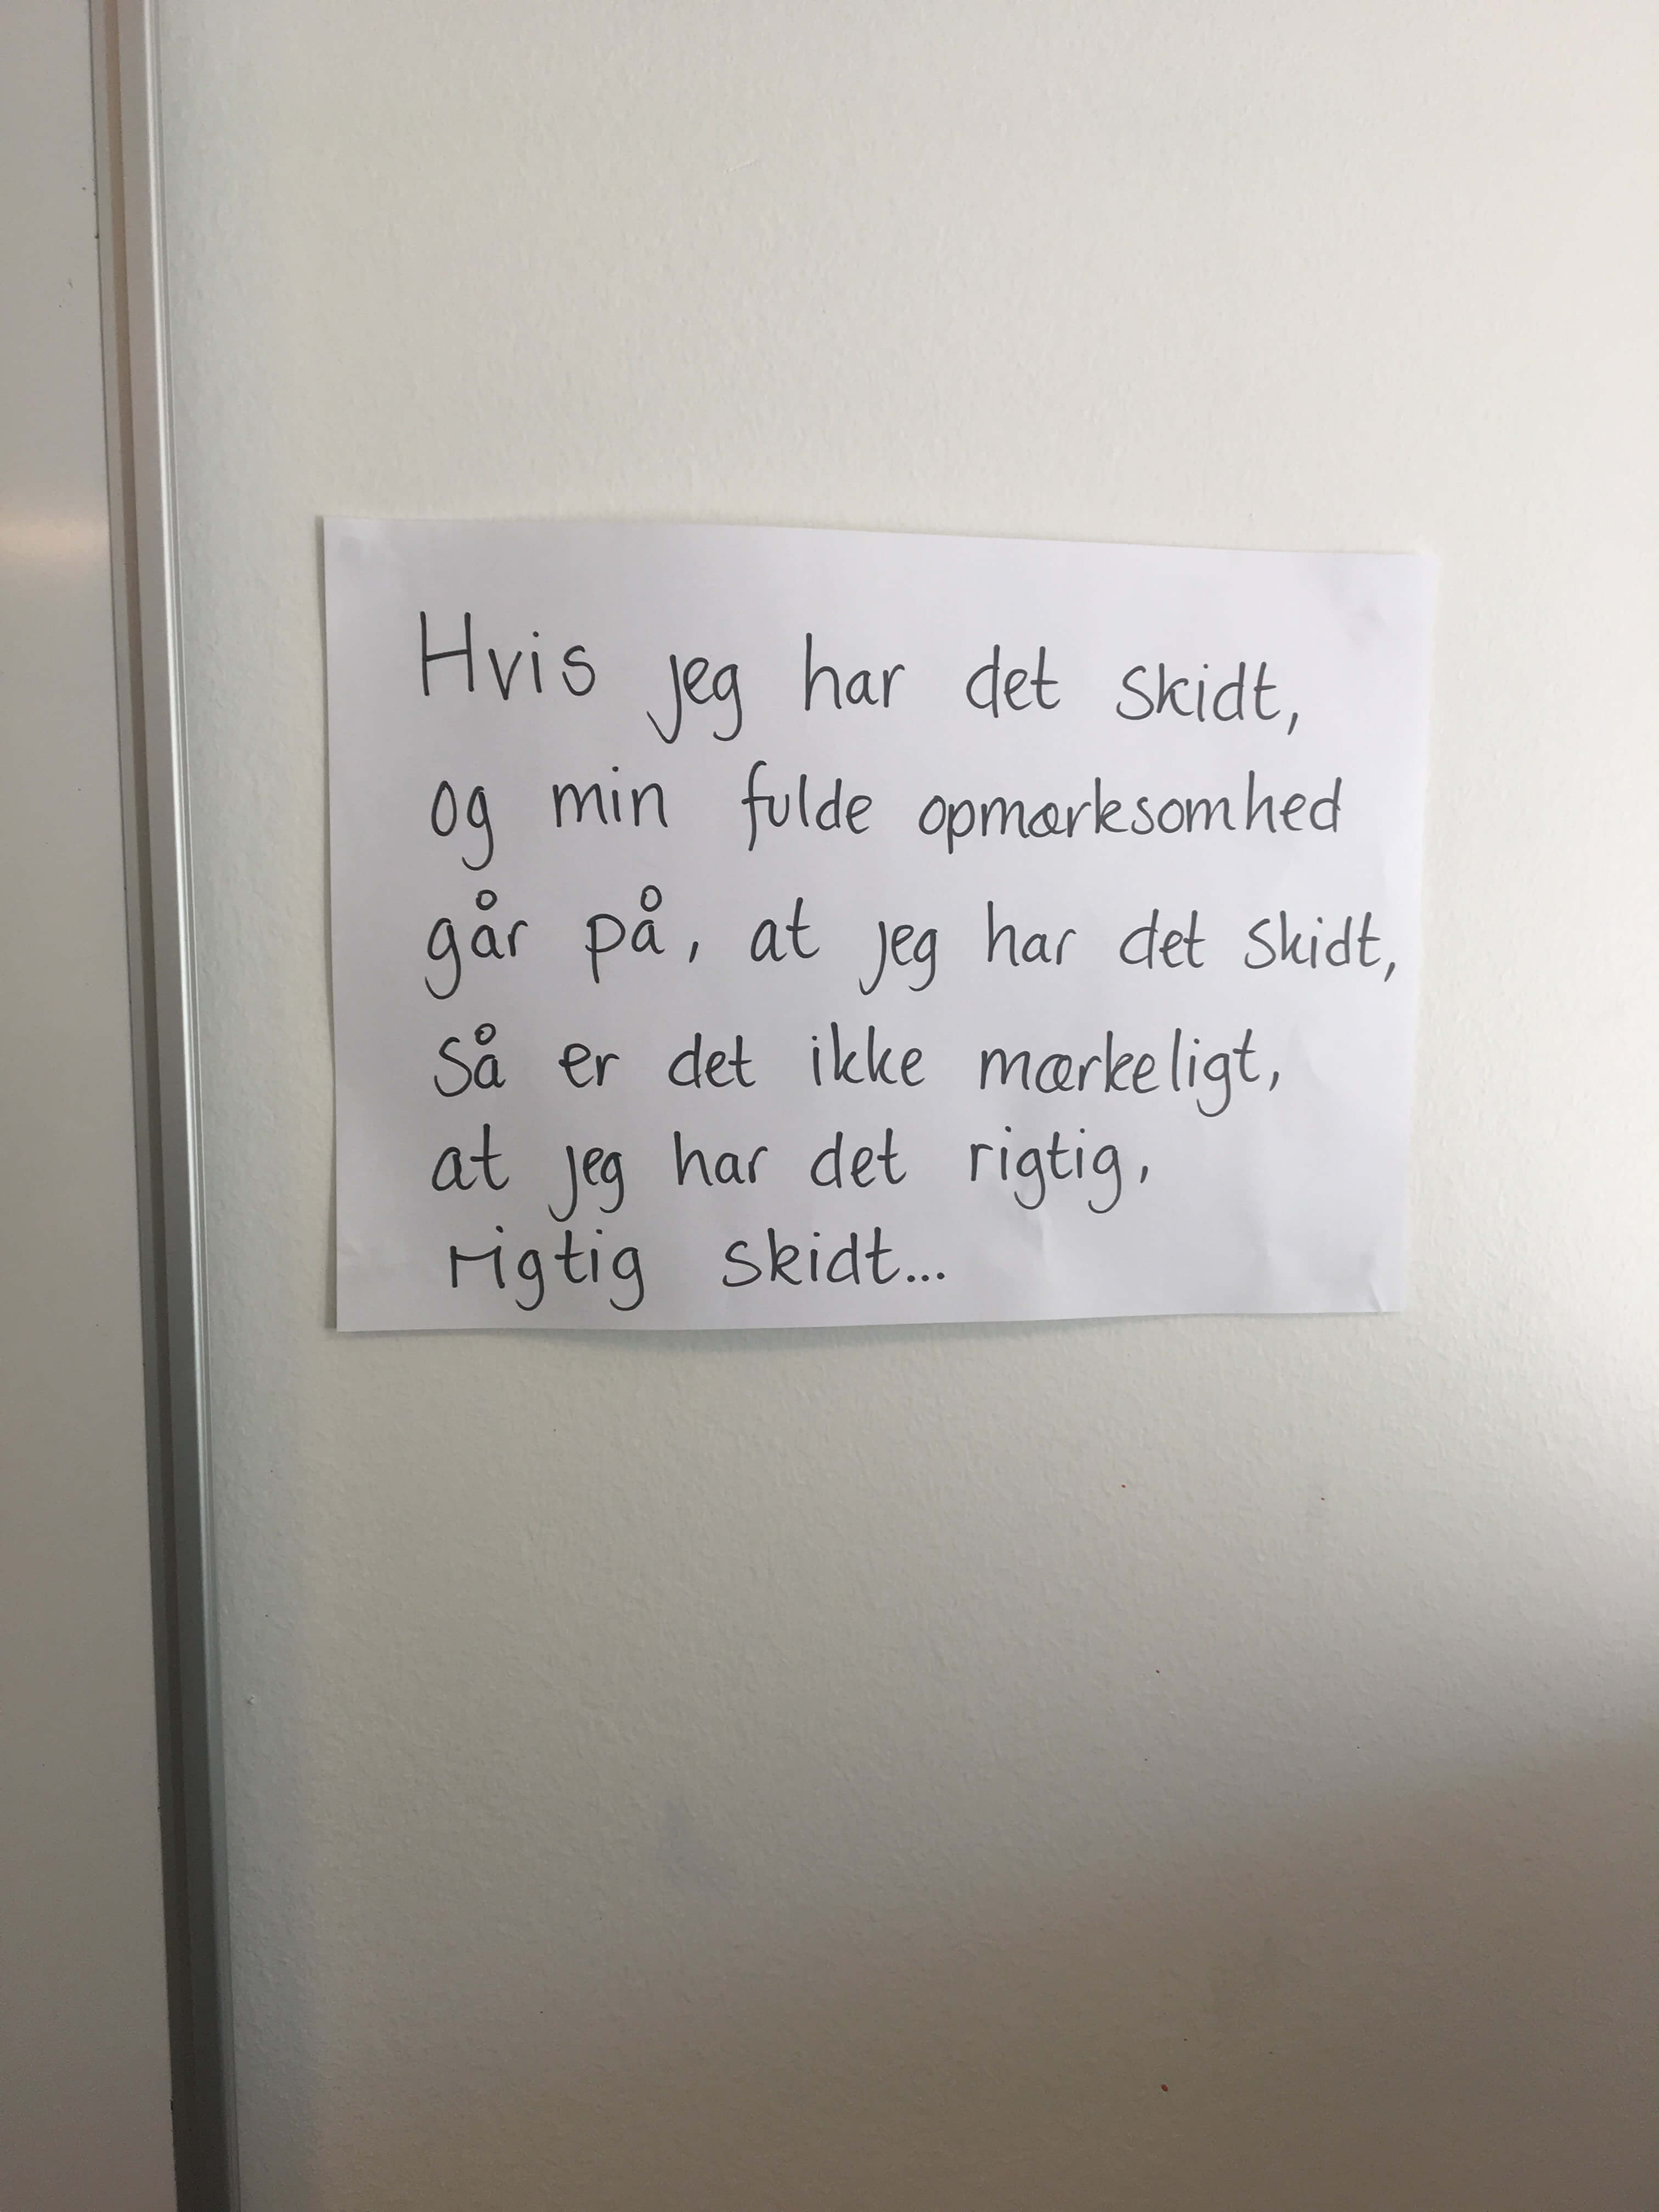 Hvis jeg har det skidt,
og min fulde opmærksomhed
går på, at jeg har det skidt,
så er det ikke mærkeligt,
at jeg har det rigtig,
rigtig skidt...